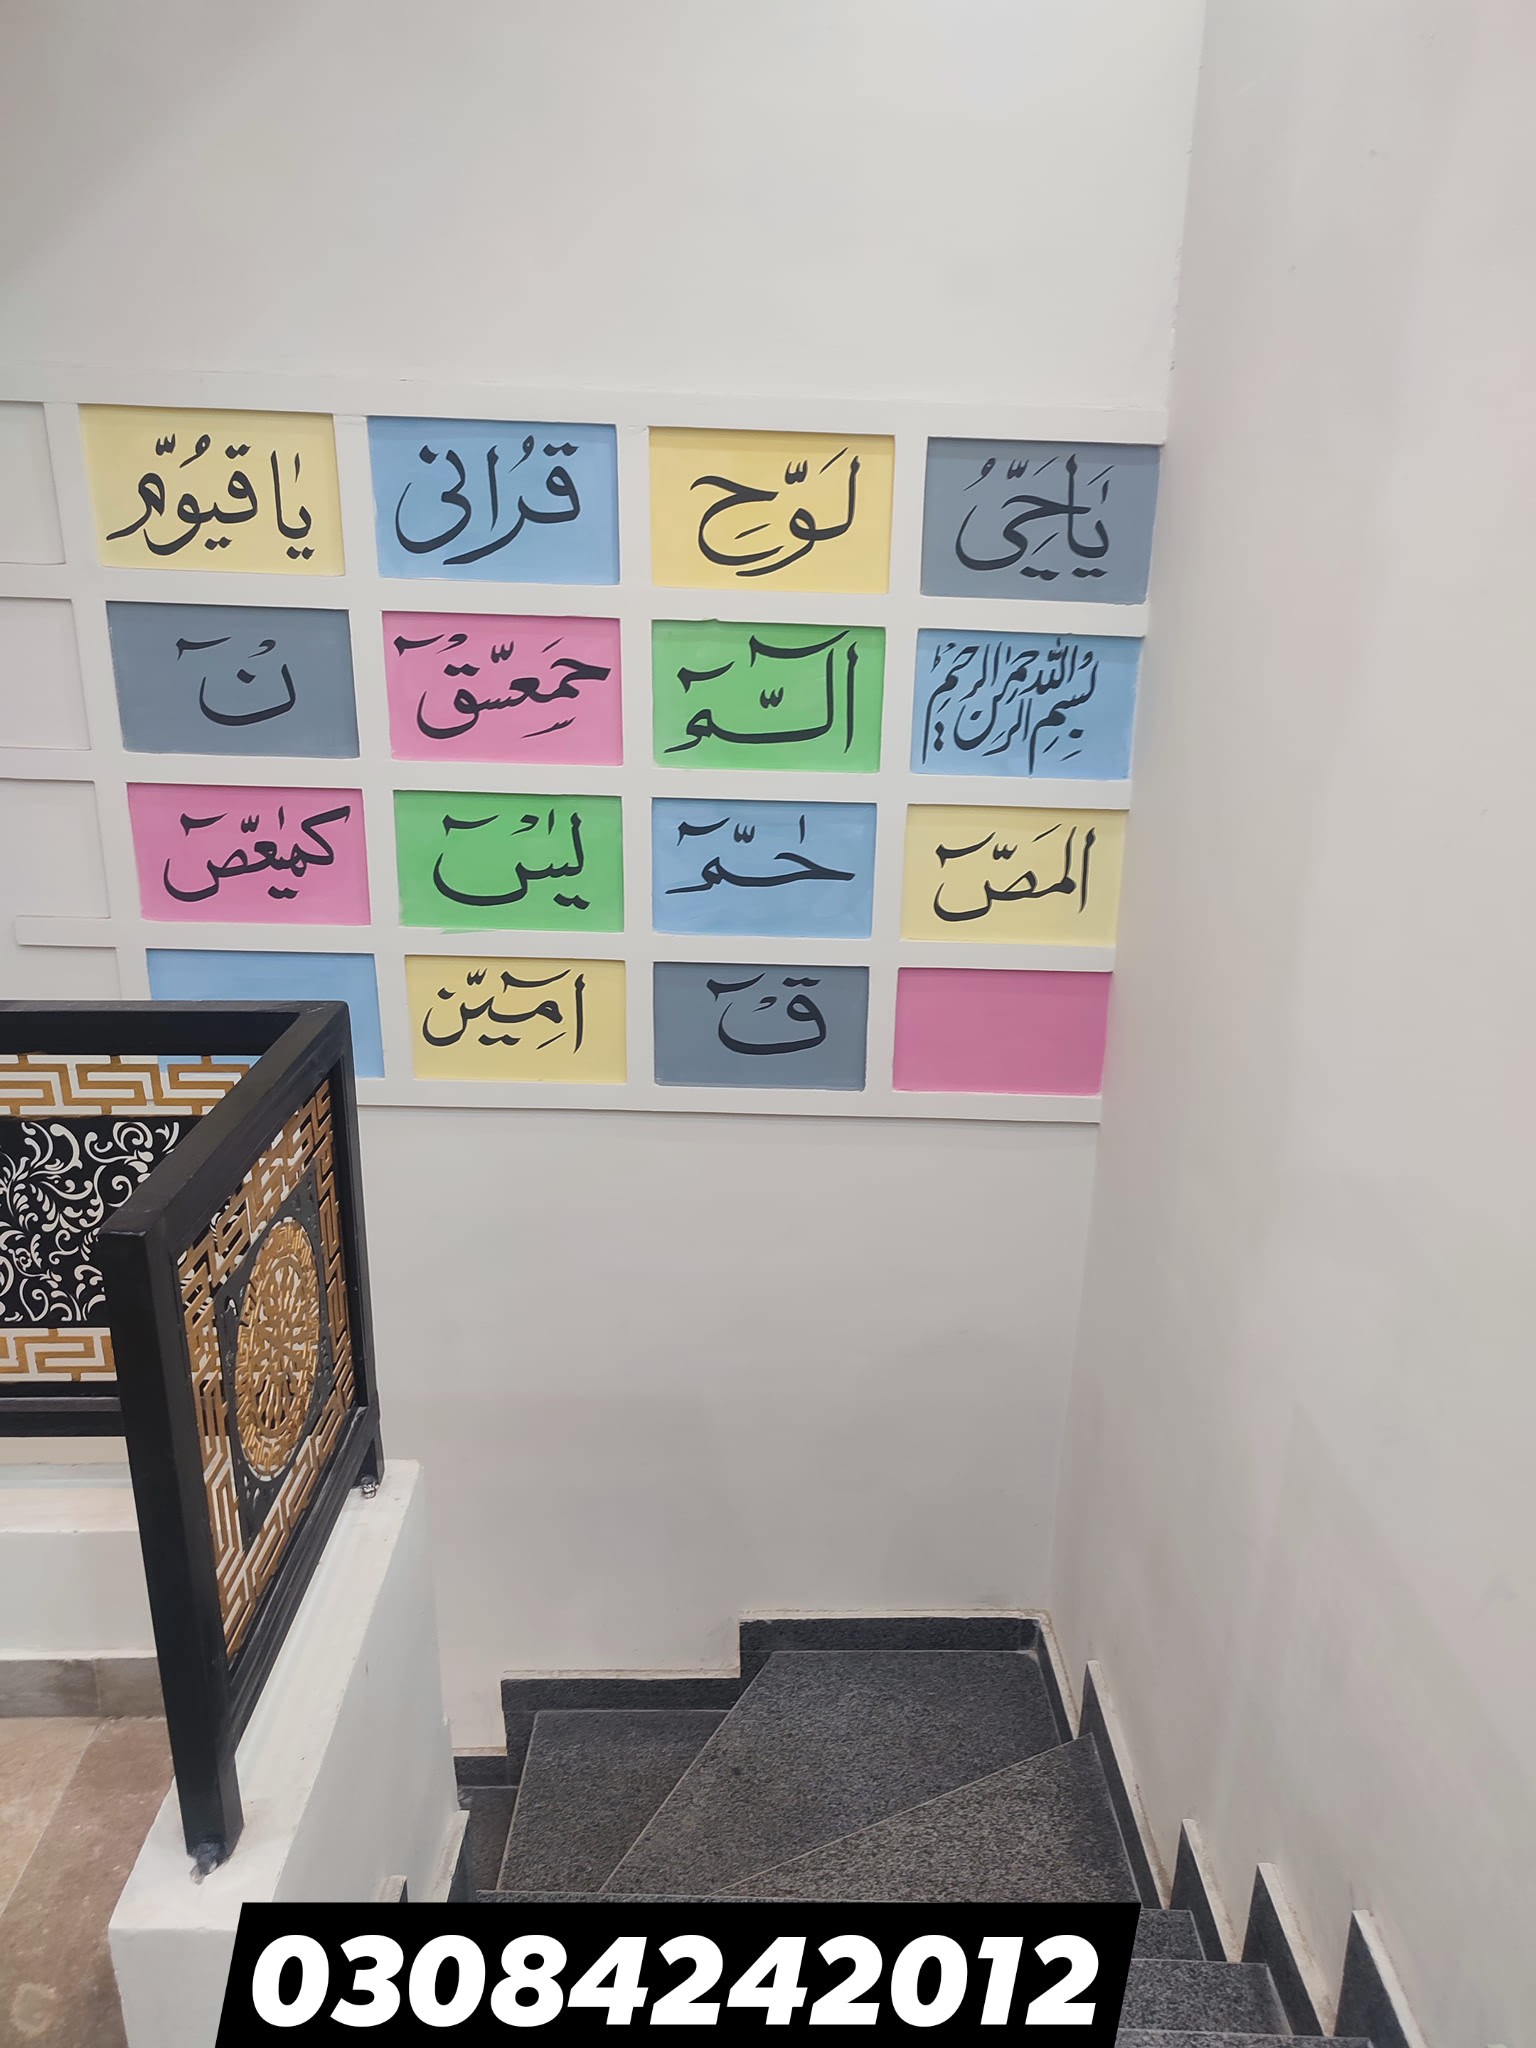 یَاحَیُّ لَوَّحِ قُرانی یاقیوُمّ
بِسمِ اللهِ الرَّحمٰنِ الرَّحیمِ الٓمّٓ حمٓعٓسٓقٓ نٓ
المٓصٓ حٰمٓ یٰسٓ کھٰیٰعٓصٓ
قٓ اٰمِیّن
03084242012